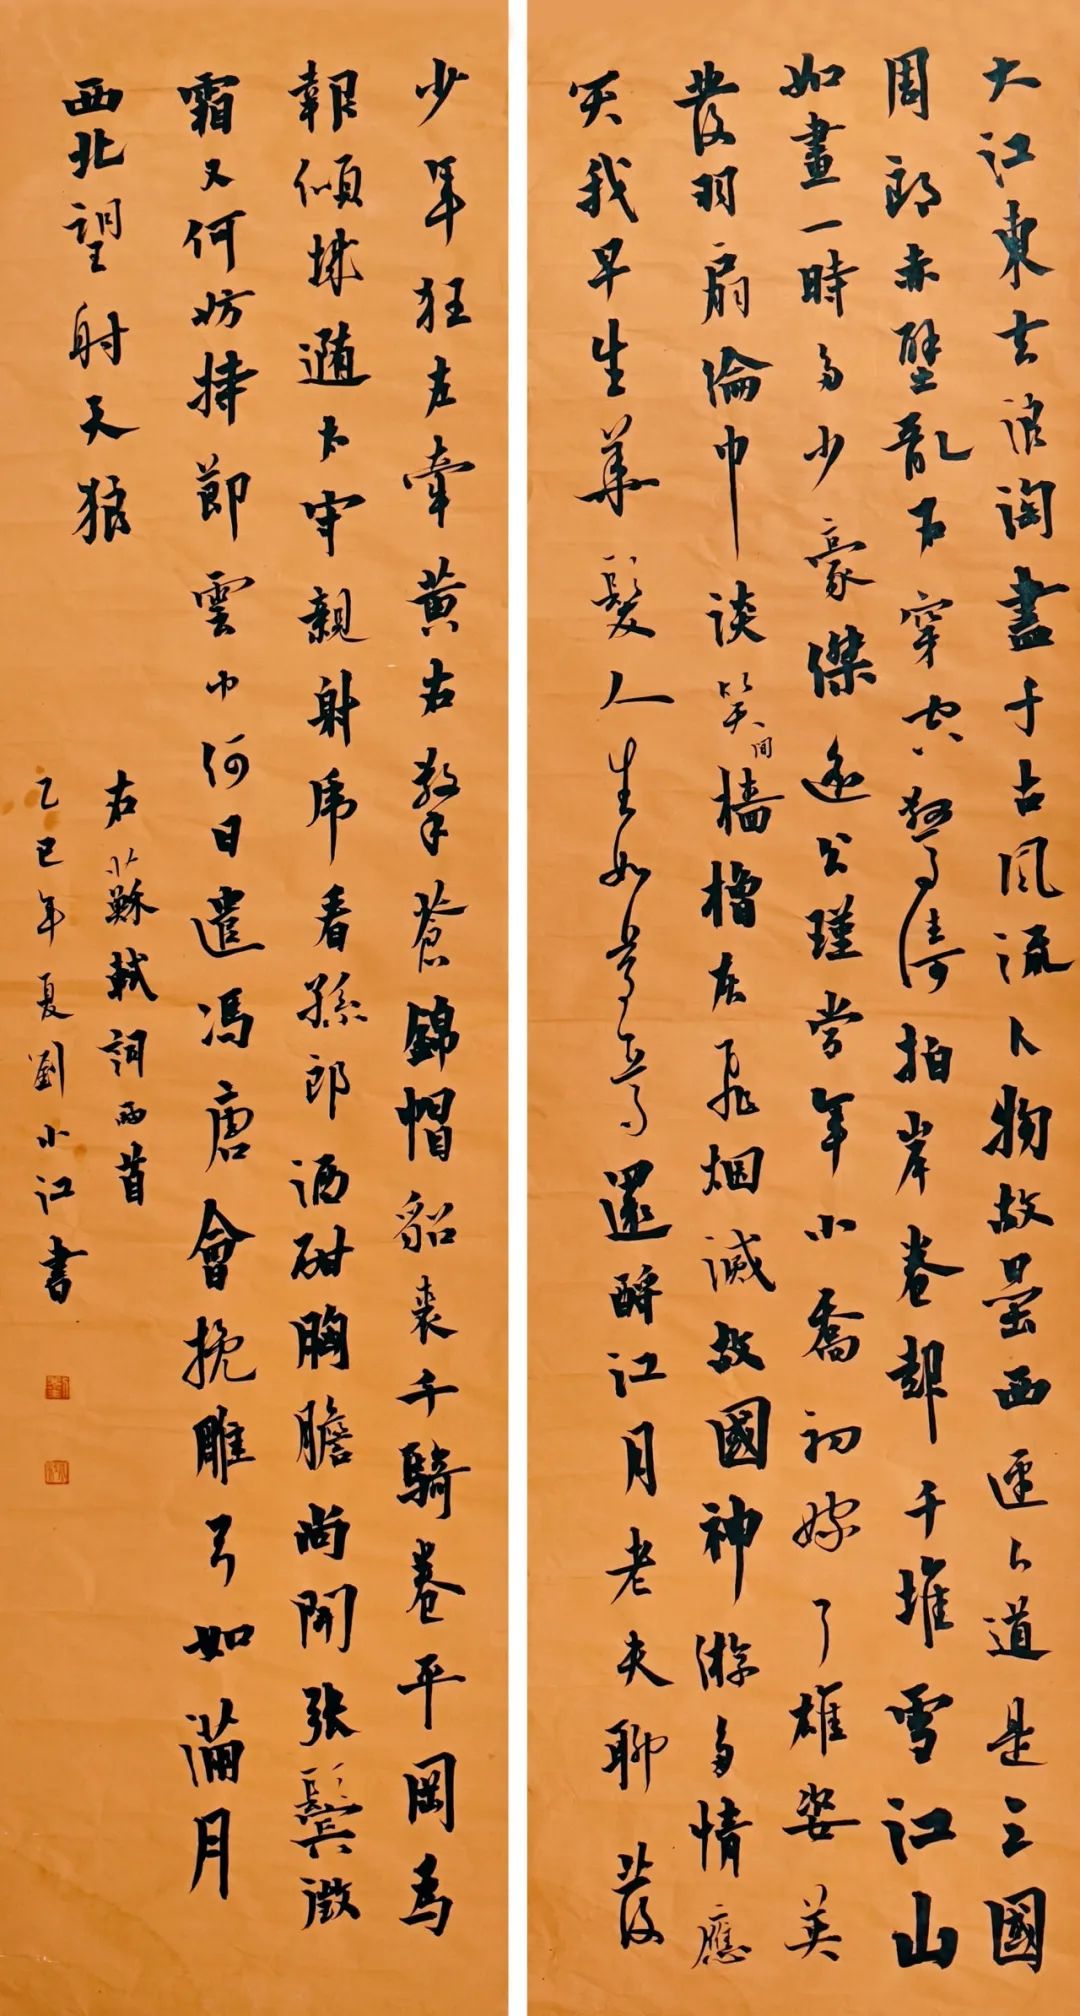 大江東去浪淘盡千古風流人物故壘西邊人道是三國
周郎赤壁亂石穿空驚濤拍岸卷却千堆雪江山
如畫一時多少豪傑遙公瑾當年小喬初嫁了雄姿英
發羽扇綸巾談笑間檣櫓灰飛烟滅故國神游多情應
笑我早生華髮人生如夢一尊還酹江月老夫聊發
少年狂左牽黃右擎蒼錦帽貂裘千騎卷平岡為
報傾城隨太守親射虎看孫郎酒酣胸膽尚開張鬢微
霜又何妨持節雲中何日遣馮唐會挽雕弓如滿月
西北望射天狼
右蘇軾詞兩首
乙巳年夏劉小江書